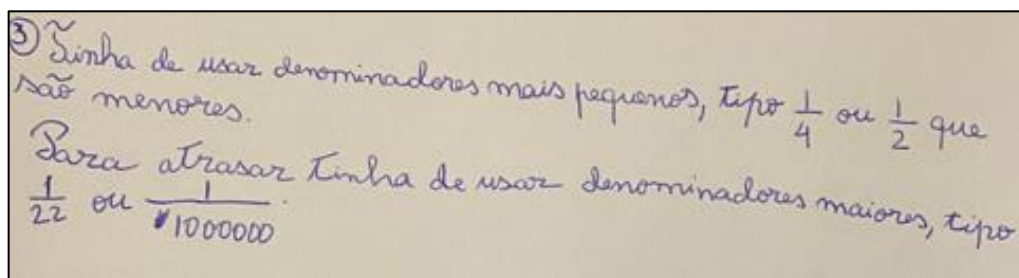 ③ Tinha de usar denominadores mais pequenos, tipo 1/4 ou 1/2 que
são menores.
Para atrasar tinha de usar denominadores maiores, tipo
1/22 ou 1/1000000.